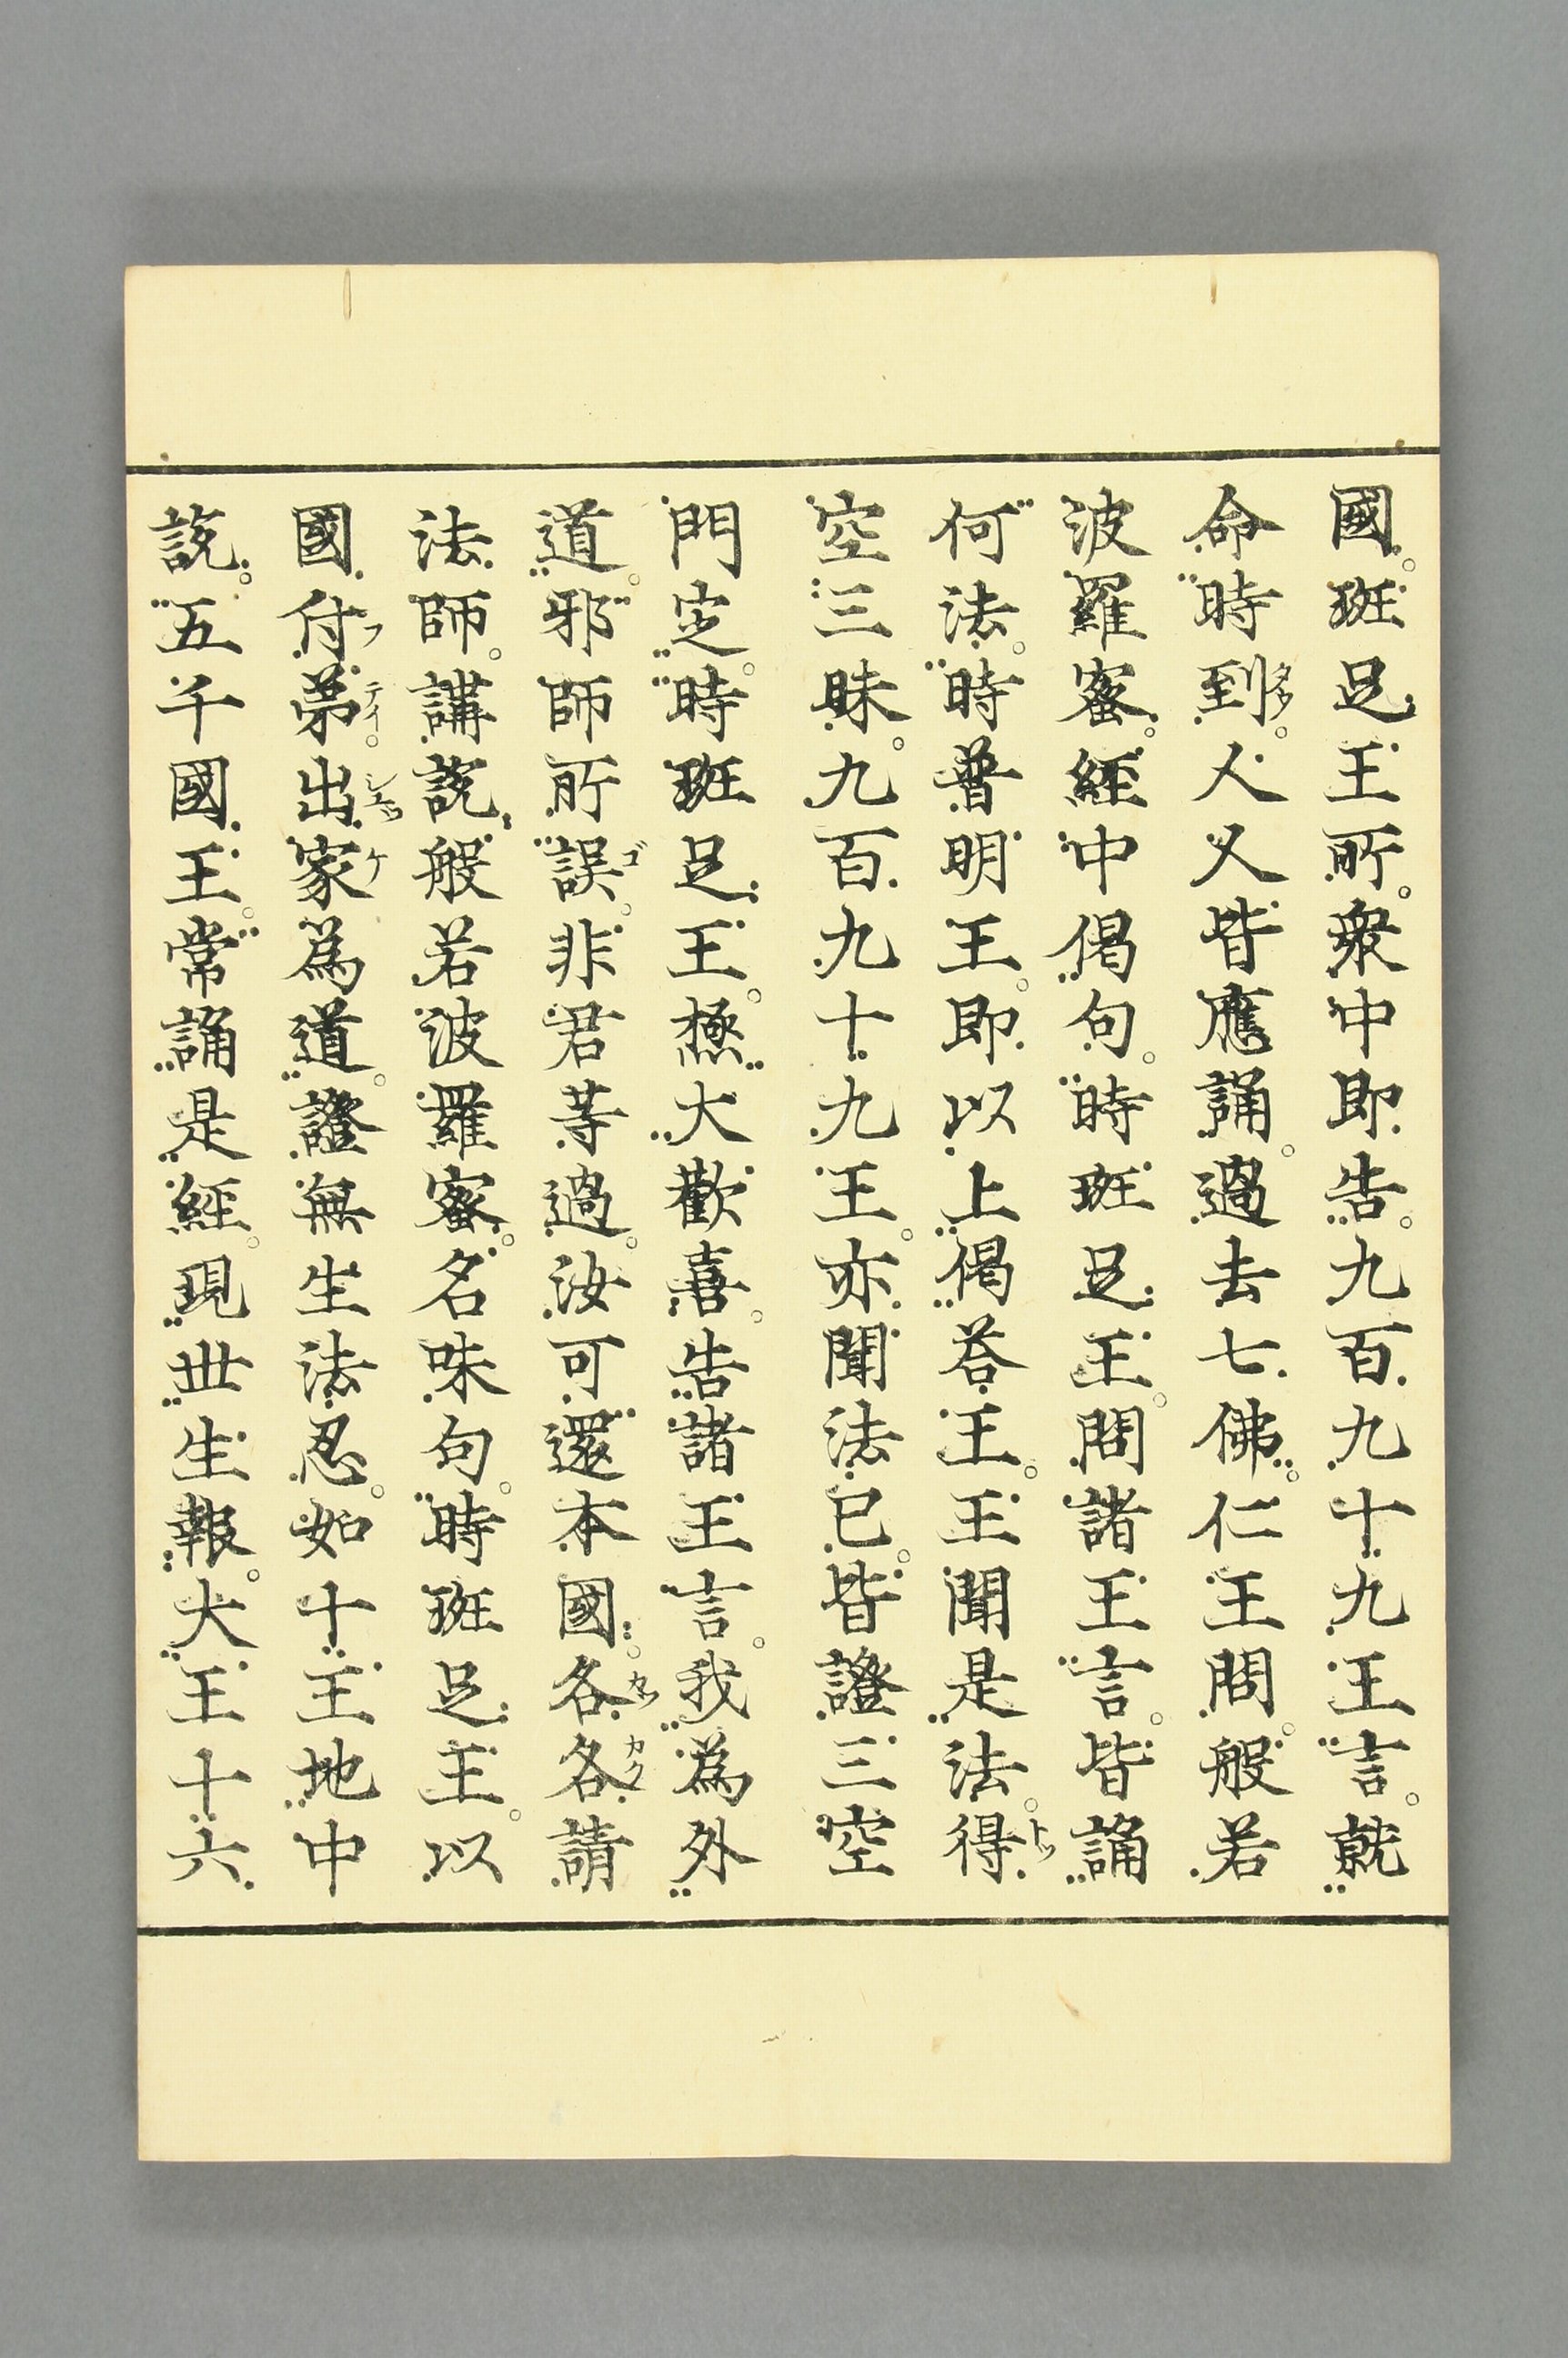 國。班足王所。衆中即告。九百九十九王言。就
命時到。人人皆應誦。過去七佛。仁王問。般若
波羅蜜。經中偈句。時班足王。問諸王言。皆誦
何法。時普明王。即以上偈荅王。王聞是法。得
空三昧。九百九十九王。亦聞法已。皆證三空
門定。時班足王。極大歡喜。告諸王言。我為外
道。邪師所誤。非君等過。汝可還本國。各各請
法師。講說般若波羅蜜。名味句。時班足王。以
國付弟。出家為道。證無生法忍。如十王地中
說。五千國王。常誦是經。現世生報。大王十六